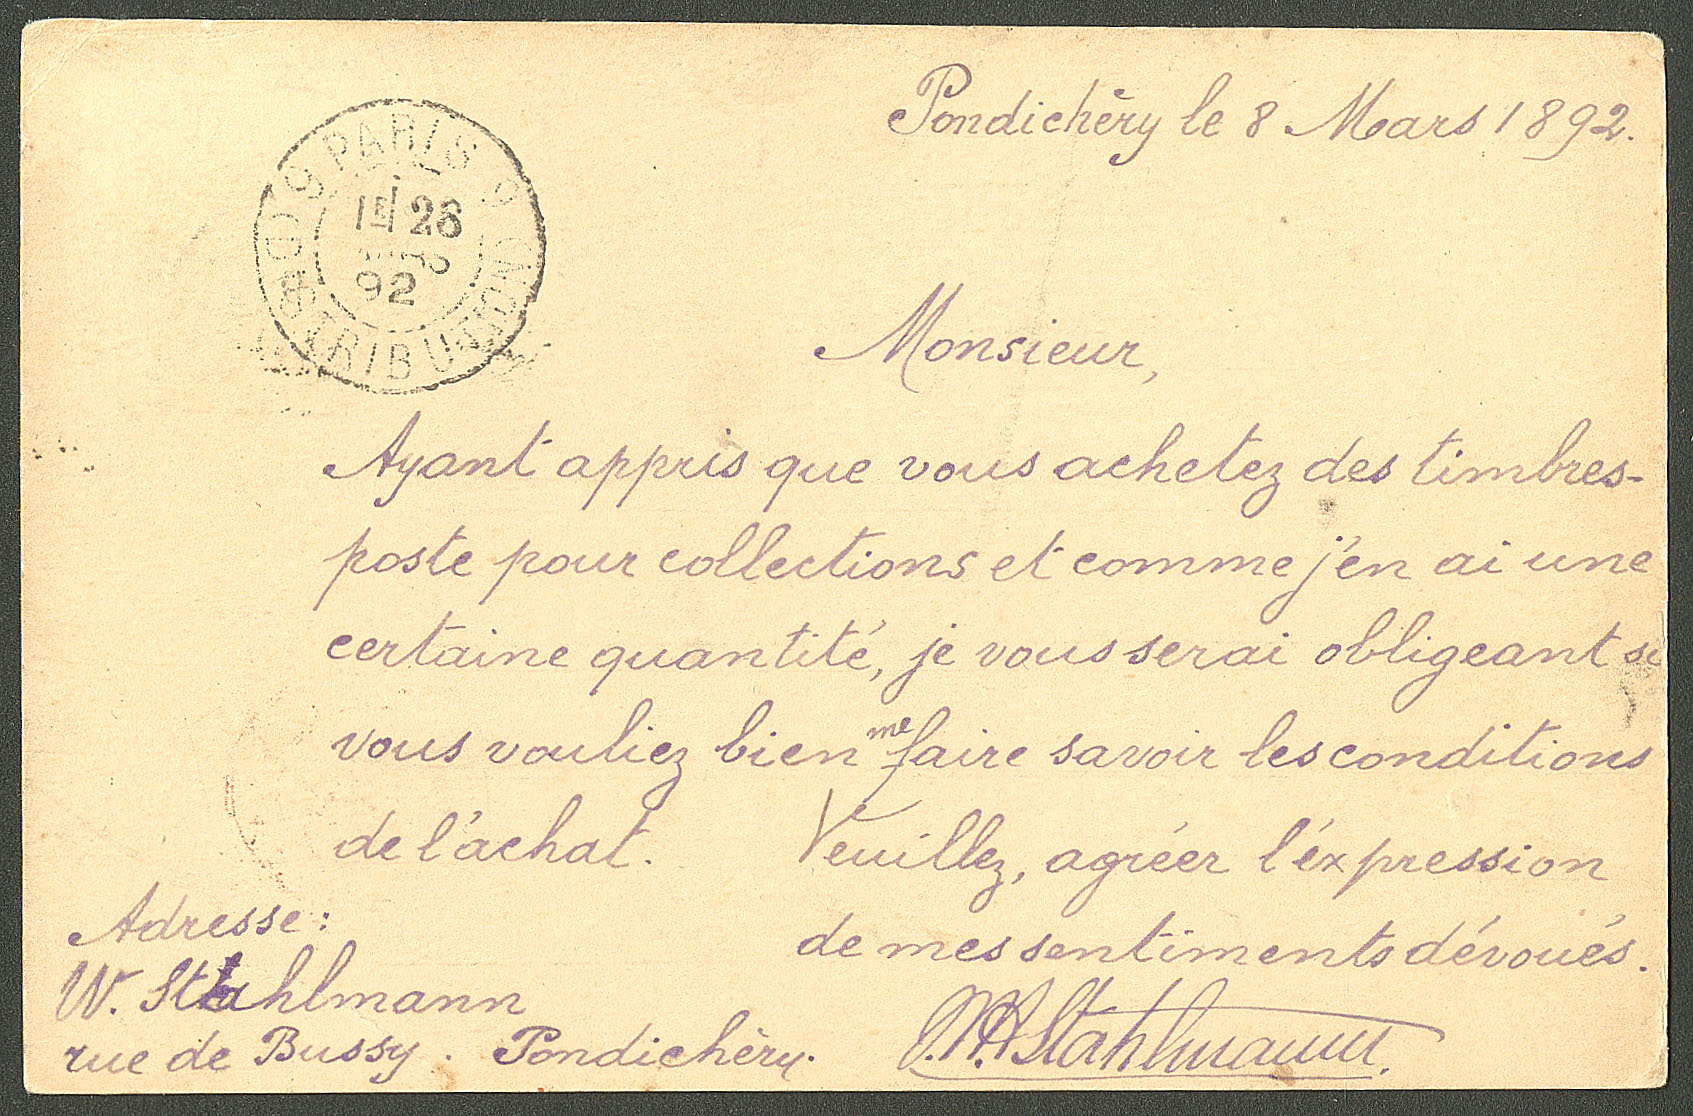 Pondichéry le 8 Mars 1892.
PARIS
26
92
DISTRIBUTION
Monsieur,
Ayant appris que vous achetez des timbres-
poste pour collections et comme j'en ai une
certaine quantité, je vous serai obligeant si
vous vouliez bien me faire savoir les conditions
de l'achat. Veuillez, agréer l'éxpression
de mes sentiments dévoués.
Adresse:
W. Stahlmann
rue de Bussy. Pondichéry.
W. Stahlmann.